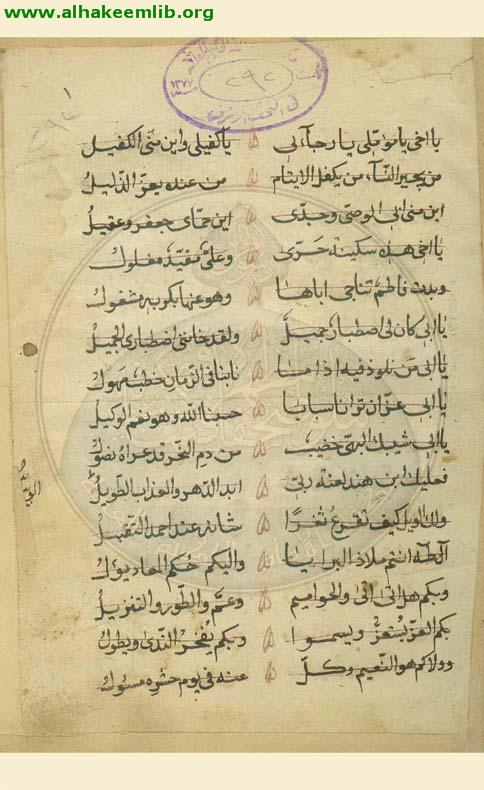 www.alhakeemlib.org
٢٩٢
يا اخي يا مؤملي يا رجآءي يا كفيلي واين مني الكفيل
من يجير النسآء من يكفل الايتام من عنده يعز الذليل
اين مني ابي الوصي وجدي اين حماي جعفر وعقيل
يا اخي هذه سكينة حسرى وعلي مقيد مغلول
وبدت فاطم تناجي اباها وهو عنها بكربه مشغول
يا ابي كان لي اصطبار جميل ولقد خانني اصطباري الجميل
يا ابي من نلوذ فيه اذا ما نابنا في الزمان خطب مهول
يا ابي عز ان ترانا سبايا حسبنا الله وهو نعم الوكيل
يا ابي شيبك البهي خضيب من دم النحر قد عراه نصول
فعليك ابن هند لعنة ربي ابد الدهر والعذاب الطويل
ولك الويل كيف تقرع ثغرا شانه عند احمد التقبيل
آل طه انتم ملاذ البرايا واليكم حكم المعاد يؤل
وبكم هل اتى اتى والحواميم وعم والطور والتنزيل
بكم العز يستعز ويسموا وبكم يفخر الندى ويطول
وولاكم هو النعيم وكل عنه في يوم حشره مسئول